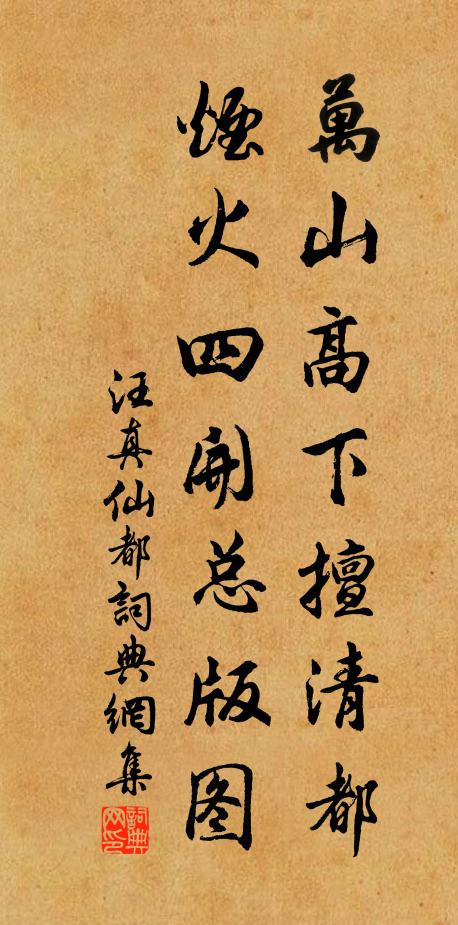 萬山高下擅清都
煙火四開总版图
汪真仙都詞典網集
詞典网印